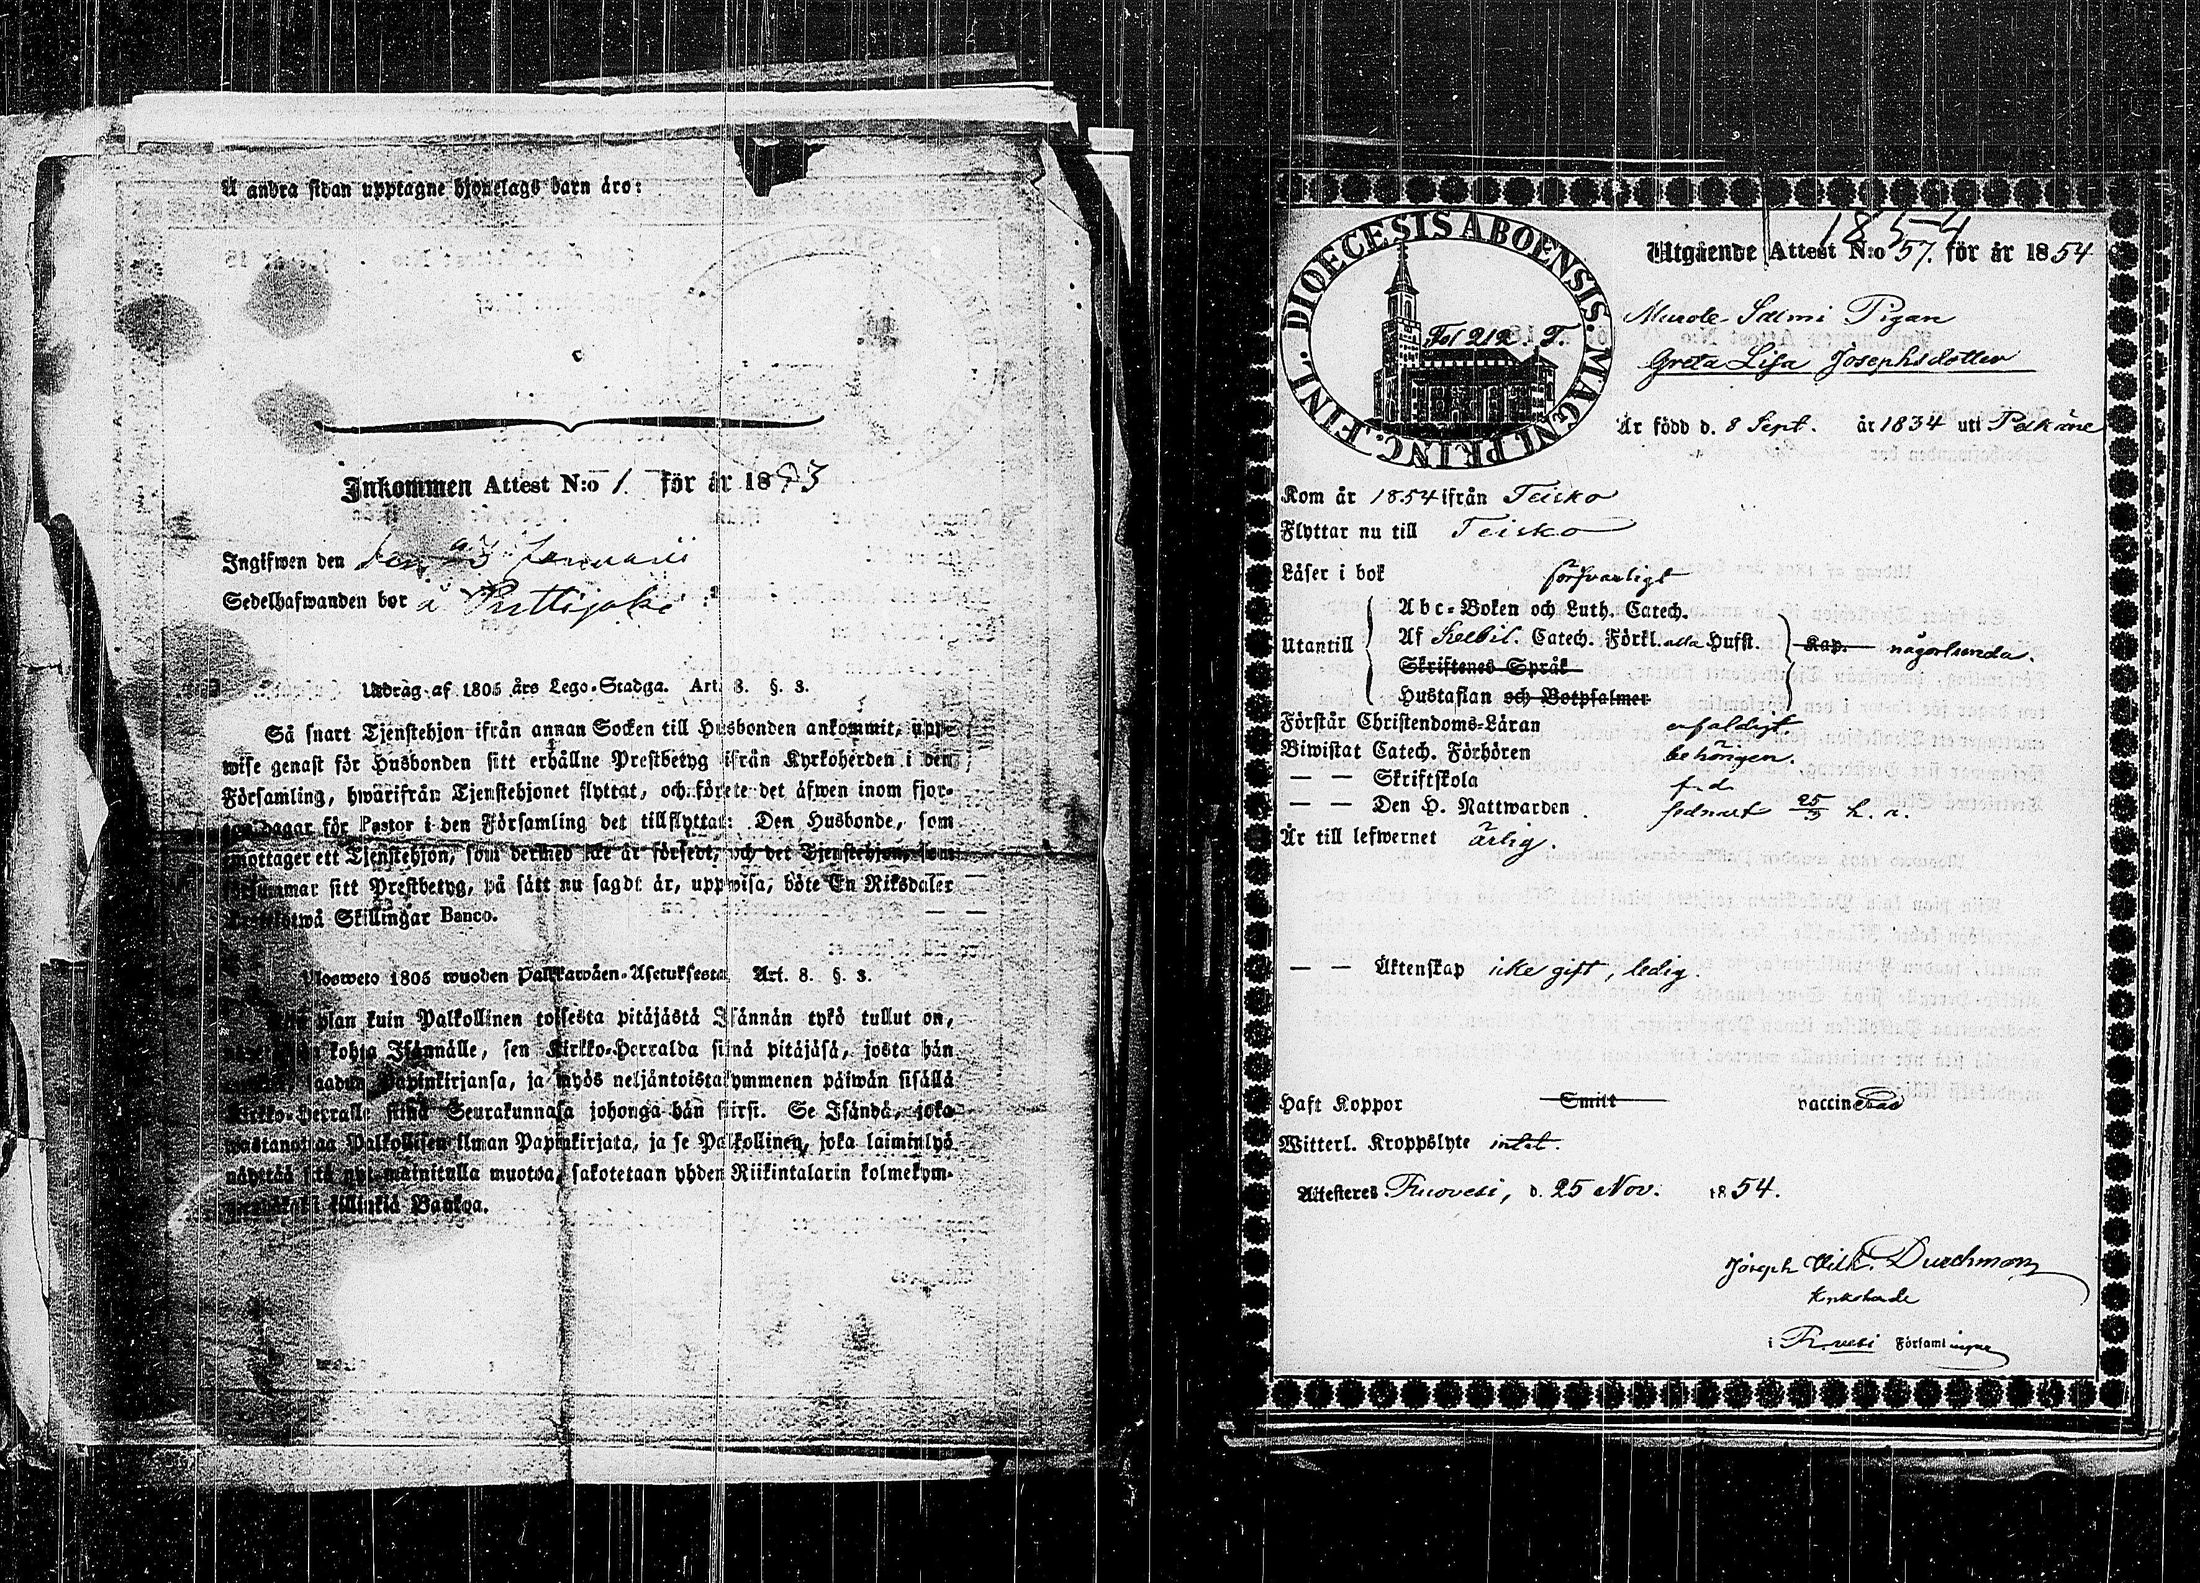 Å andra sidan upptagne hjonelags barn äro:
Inkommen Attest N:o 1. för år 18 3
Ingifwen den den 23 Januarii
Sedelhafwanden bor å
Utdrag af 1805 års Lego-Stadga. Art. 8. §. 3.
Så snart Tjenstehjon ifrån annan Socken till Husbonden ankommit, upp-
wise genast för Husbonden sitt erhållne Prestbetyg ifrån Kyrkoherden i den
Församling, hwarifrån Tjenstehjonet flyttat, och förete det äfwen inom fjor-
ton dagar för Pastor i den Församling det tillflyttat: Den Husbonde, som
emottager ett Tjenstehjon, som dermed icke är försedt, och det Tjenstehjon, som
försummar sitt Prestbetyg, på sätt nu sagdt är, uppwisa, böte En Riksdaler
Skillingar Banco.
Ulosweto 1805 wuoden Palkkawäen-Asetuksesta Art. 8. §. 3.
pian kuin Palkollinen toisesta pitäjästä Isännän tykö tullut on,
kohta Isännälle, sen Kirkko-Herralda siinä pitäjäsä, josta hän
saadun Papinkirjansa, ja myös neljäntoistakymmenen päiwän sisällä
Kirkko-Herralle siinä Seurakunnasa johonga hän siirsi. Se Isändä, joka
wastanottaa Palkollisen ilman Papinkirjata, ja se Palkollinen, joka laiminlyö
näyttää sitä nyt mainitulla muotoa, sakotetaan yhden Riikintalarin kolmekym-
killinkiä Bankoa.
DIOECESIS ABOENSIS. MAGNI PRINC. FINL.
Fol 212. T.
1854
Utgående Attest N:o 57. för år 1854
Murole Salmi Pigan
Greta Lisa Josephsdotter
Är född d. 8 Sept. år 1834 uti Pelkäne
Kom år 1854 ifrån Teisko
Flyttar nu till Teisko
Läser i bok försvarligt
Utantill
Abc-Boken och Luth. Catech.
Af Svebil. Catech. Förkl. alla Hufst. Kap. någorlunda.
Skriftenes Språk
Hustaflan och Botpsalmer
Förstår Christendoms-Läran enfaldigt.
Biwistat Catech. Förhören behörigen.
— — Skriftskola f. d.
— — Den H. Nattwarden sednast 25/5 h. a.
Är till lefwernet ärlig.
— — Äktenskap icke gift, ledig.
Haft Koppor Smitt vaccinerad
Witterl. Kroppslyte intet.
Attesteres Ruovesi, d. 25 Nov. 1854.
Joseph Wilh. Durchman
Kyrkoherde
i Ruovesi Församlingar